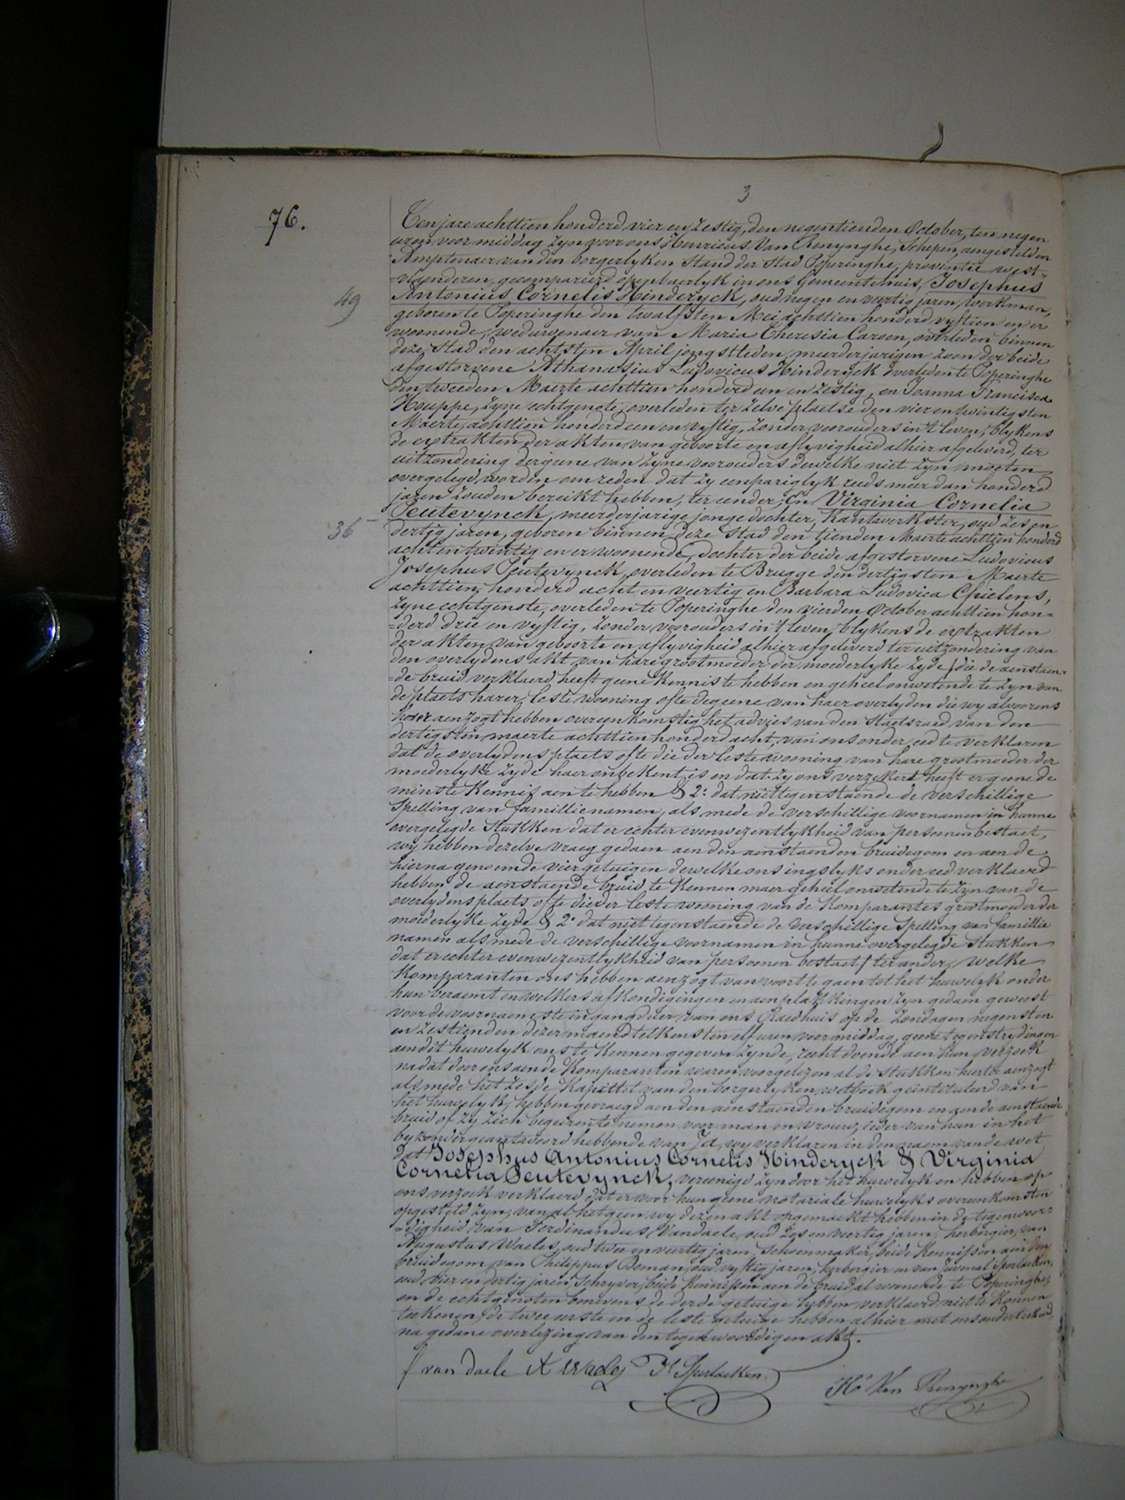 3
76.
Ten jare achttien honderd vier en zestig, den negentienden October, ten negen
uren voormiddag zyn voor ons Henricus Van Renynghe, Schepen, aengestelden
Amptenaer van den borgerlyken stand der stad Poperinghe, provintie west-
-vlaenderen, gecompareerd openbaerlyk in ons Gemeentehuis, Josephus
49
Antonius Cornelis Hinderyck, oud negen en veertig jaren, werkman,
geboren te Poperinghe den twaelfsten Mei achttien honderd vyftien en er
woonende, weduwenaer van Maria Theresia Carson, overleden binnen
deze stad den achtsten April jongstleden, meerderjarigen zoon der beide
afgestorvene Athanasius Ludovicus Hinderyck overleden te Poperinghe
den tweeden Maerte achttien honderd een en zestig, en Joanna Francisca
Houppe, zyne echtgenote, overleden ter zelve plaetse den vier en twintigsten
Maerte achttien honderd een en vyftig, zonder voorouders in 't leven, blykens
de extrakten der akten van geboorte en aflyvigheid alhier afgeleverd, ter
uitzondering dergene van zyne voorouders dewelke niet zyn moeten
overgelegd worden om reden dat zy eenpariglyk reeds meer dan honderd
jaren zouden bereikt hebben, ter eender, En Virginia Cornelia
36
Peutevynck, meerderjarige jonge dochter, Kantwerkster, oud zes en
dertig jaren, geboren binnen deze stad den tienden Maerte achttien honderd
acht en twintig en er woonende, dochter der beide afgestorvene Ludovicus
Josephus Peutevynck, overleden te Brugge den dertigsten Maerte
achttien honderd acht en veertig en Barbara Ludovica Spielens,
zyne echtgenote, overleden te Poperinghe den vierden October achttien hon-
-derd drie en vyftig, zonder voorouders in 't leven, blykens de extrakten
der akten van geboorte en aflyvigheid alhier afgeleverd ter uitzondering van
den overlydens akt van hare grootmoeder der moederlyke zyde, die de aenstaen-
-de bruid verklaerd heeft geene kennis te hebben en geheel onwetende te zyn van
de plaets harer leste wooning ofte degene van haer overlyden die wy alvorens
voor aenzogt hebben overeenkomstig het advies van den staetsraed van den
dertigsten maerte achttien honderd acht, van ons onder eed te verklaren
dat de overlydens plaets ofte die der leste wooning van hare grootmoeder der
moederlyke zyde haer onbekent is en dat zy ons verzekert heeft er geene de
minste kennis aen te hebben & 2° dat niettegenstaende de verschillige
spelling van famillie namen, als mede de verschillige voornamen in hunne
overgelegde stukken dat er echter eenwezentlykheid van persoonen bestaet,
wy hebben dezelve vraeg gedaen aen den aenstaenden bruidegom en aen de
hierna genoemde vier getuigen dewelke ons ingslyks onder eed verklaerd
hebben de aenstaende bruid te kennen maer geheel onwetende te zyn van de
overlydensplaets ofte die der leste wooning van de Komparantes grootmoeder der
moederlyke zyde & 2° dat niettegenstaende de verschillige spelling van famillie
namen als mede de verschillige voornamen in hunne overgelegde stukken
dat er echter eenwezentlykheid van persoonen bestaet) ter ander, welke
Komparanten ons hebben aenzogt van voort te gaen tot het huwelyk onder
hun beraemt en welkers afkondigingen en aenplakkingen zyn gedaen geweest
voor de voornaemste ingangdeur van ons Raedhuis op de zondagen negensten
en zestienden dezer maend telkens ten elf uren voormiddag, geene tegenstrydingen
aen dit huwelyk ons te kennen gegeven zynde, recht doende aen hun verzoek
nadat door ons aen de Komparanten waren voorgelezen al de stukken hierin aenzogt
als mede het zesde Kapittel van den borgerlyken wetboek geintituleerd van
het huwelyk, hebben gevraegd aen den aenstaenden bruidegom en aen de aenstaende
bruid of zy zich begeeren te nemen voor man en vrouw, ieder van hun in het
byzonder geantwoord hebbende van Ja, wy verklaren in den naem van de wet
dat Josephus Antonius Cornelis Hinderyck & Virginia
Cornelia Peutevynck, vereenigd zyn door het huwelyk en hebben op
ons verzoek verklaerd dat er voor hun geene notariale huwelyks overeenkomsten
opgesteld zyn, van al hetgeen wy dezen akt opgemaekt hebben in de tegenwoor-
-digheid van Ferdinandus Vandaele, oud zes en veertig jaren, herbergier, van
Augustus Waeles, oud twee en veertig jaren, schoenmaker, beide Kennissen aen den
bruidegom, van Philippus Doman, oud vyftig jaren, herbergier en van Juvenal Sperlaeken,
oud vier en dertig jaren, schryver, beide kennissen aen de bruid al woonende te Poperinghe,
en de echtgenoten benevens de derde getuige hebben verklaerd niet te kunnen
teekenen, de twee eerste en de leste getuige hebben alhier met ons onderteekend
na gedane overlezing van den tegenwoordigen akt.
f van daele A Waeles Jl Sperlaeken
Hri Van Renynghe